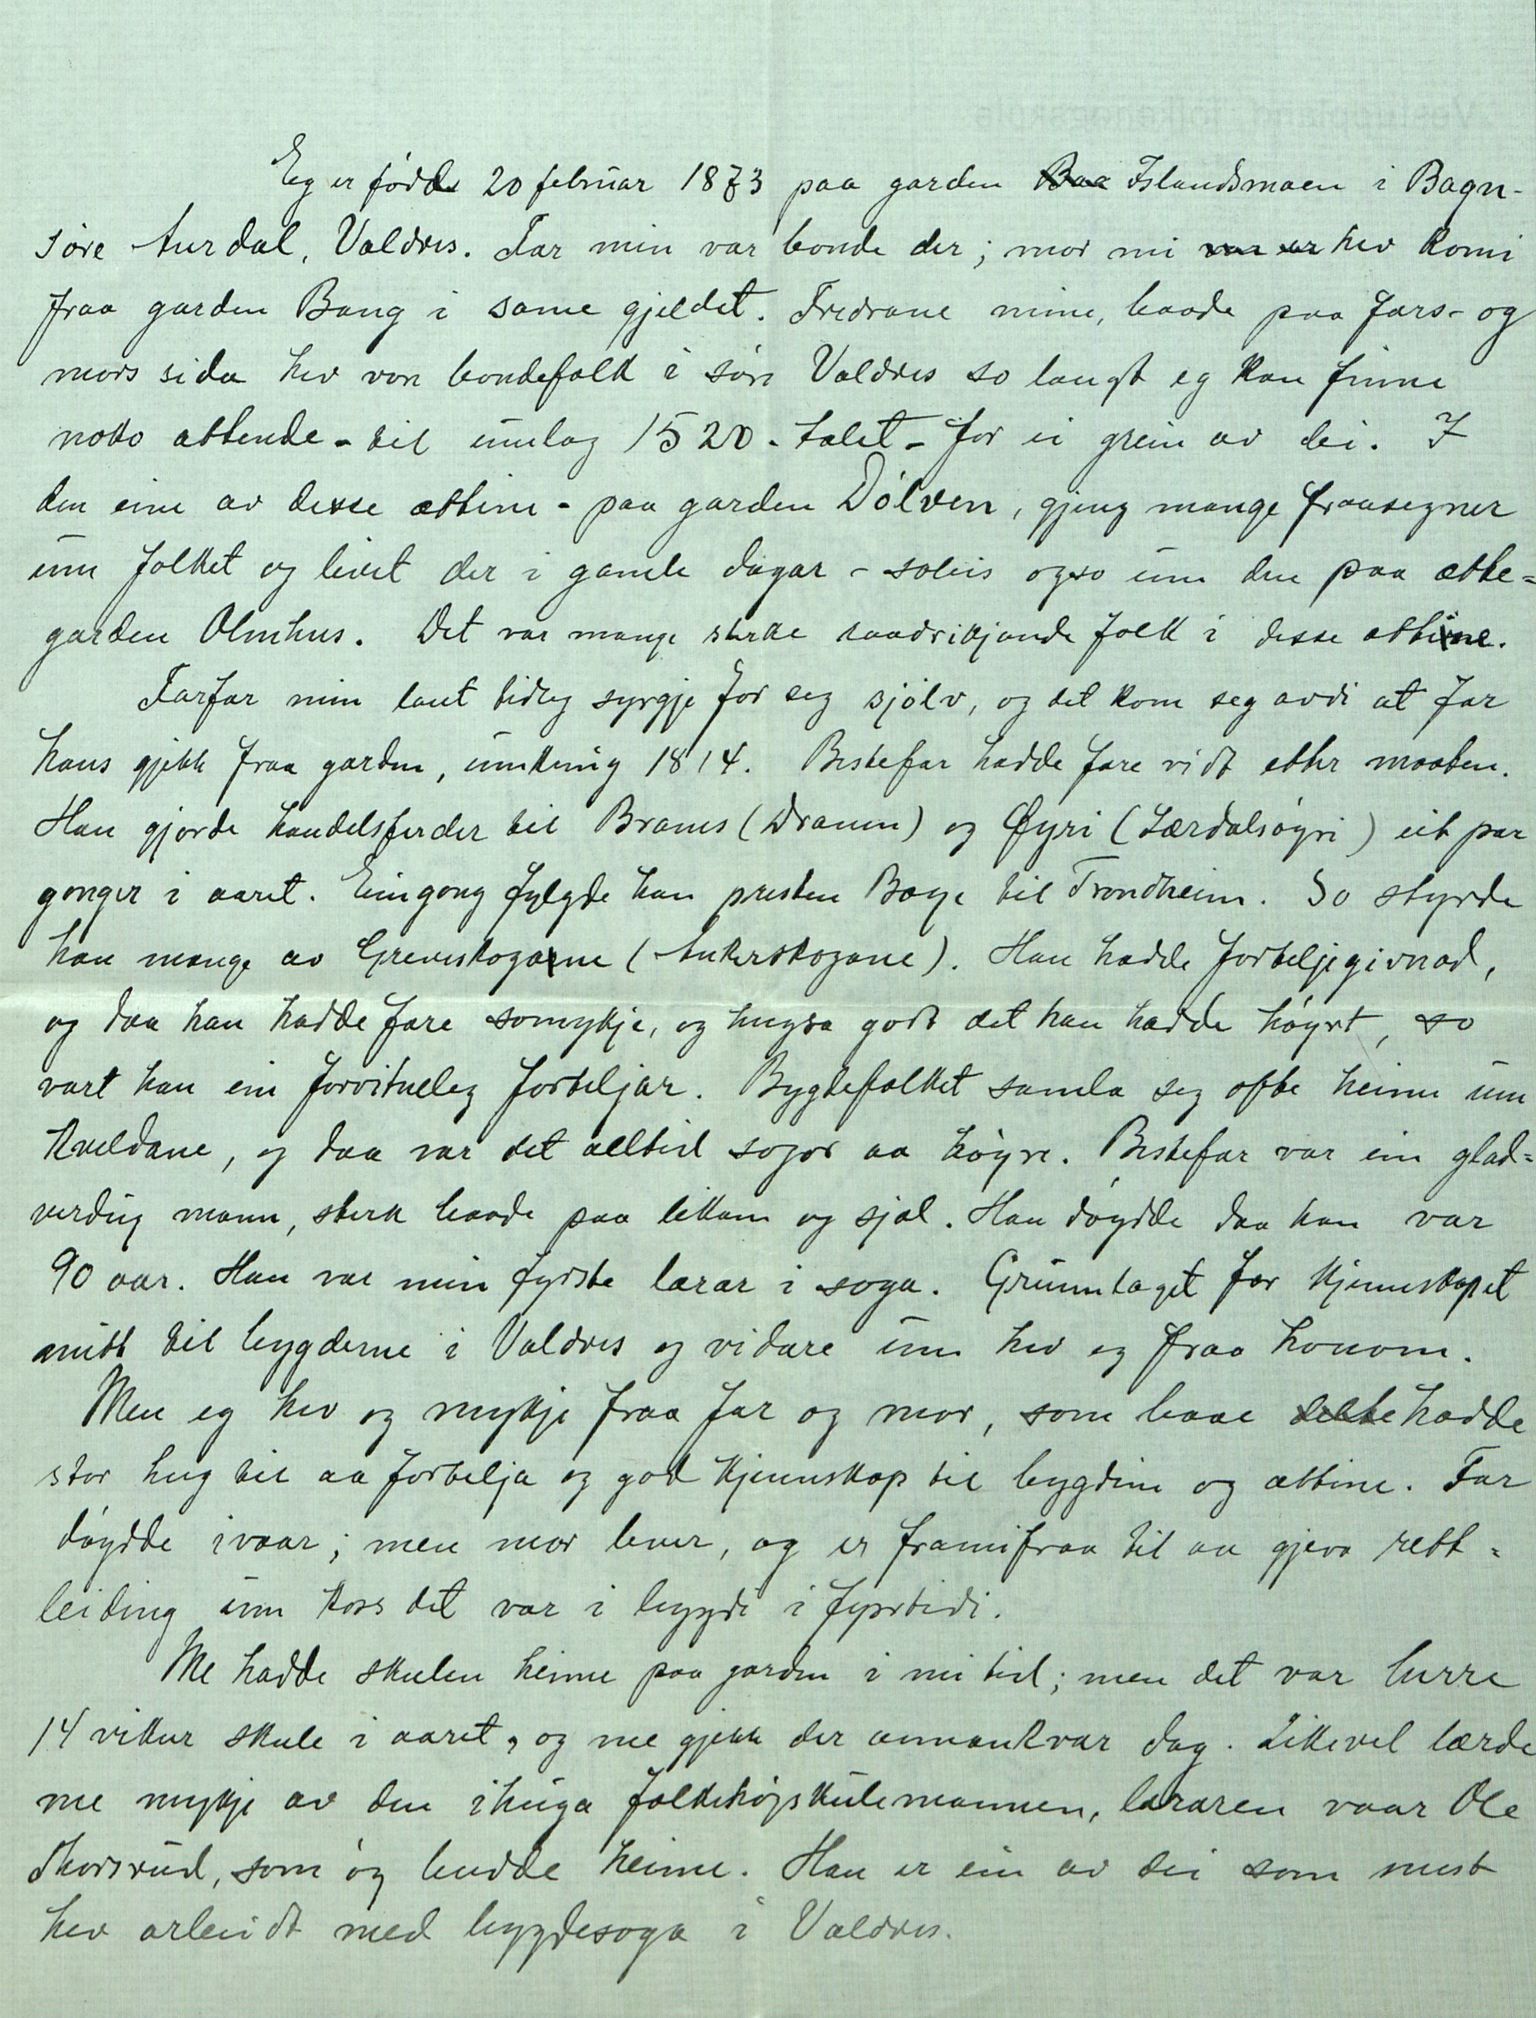 Eg er fødd 20 februar 1873 paa garden Islandsmoen i Bagn-
søre Aurdal, Valdres. Far min var bonde der; mor mi hev komi
fraa garden Bang i same gjeldet. Fredrane mine, baade paa fars- og
mors sida hev vore bondefolk i søre Valdres so langt eg kan finne
noko attende - til umlag 1520-talet - for ei grein av dei. I
den eine av desse ættine - paa garden Dølven, gjeng mange fraasegner
um folket og livet der i gamle dagar - soleis ogso um den paa ætte=
garden Olmhus. Det var mange sterke saadrikjande folk i desse ættine.
Farfar min laut tidleg syrgje for seg sjølv, og det kom seg avdi at far
hans gjekk fraa garden, umkring 1814. Bestefar hadde fare vidt etter maaten.
Han gjorde handelsferder til Branes (Dramn) og Øyri (Lærdalsøyri) eit par
gonger i aaret. Eingong fylgde han presten Boye til Trondheim. So styrde
han mange av Greveskogane (Ankerskogane). Han hadde forteljegivnad,
og daa han hadde fare so mykje, og hugsa godt det han hadde høyrt, so
vart han ein forvitneleg forteljar. Bygdefolket samla seg ofte heime um
kveldane, og daa var det alltid sogor aa høyre. Bestefar var ein glad=
verdug mann, sterk baade paa likam og sjæl. Han døydde daa han var
90 aar. Han var min fyrste lærar i soga. Grunnlaget for kjennskapet
mitt til bygderne i Valdres og vidare um hev eg fraa honom.
Men eg hev og mykje fraa far og mor, som baae hadde
stor hug til aa fortelja og god kjennskap til bygdine og ættine. Far
døydde i vaar; men mor lever, og er framifraa til aa gjeva rett=
leiding um koss det var i bygdi i fyrstidi.
Me hadde skulen heime paa garden i mi tid; men det var berre
14 vikur skule i aaret, og me gjekk der annankvar dag. Likevel lærde
me mykje av den ihuga folkehøgskulemannen, læraren vaar Ole
Thorsrud, som òg budde heime. Han er ein av dei som mest
hev arbeidt med bygdesoga i Valdres.